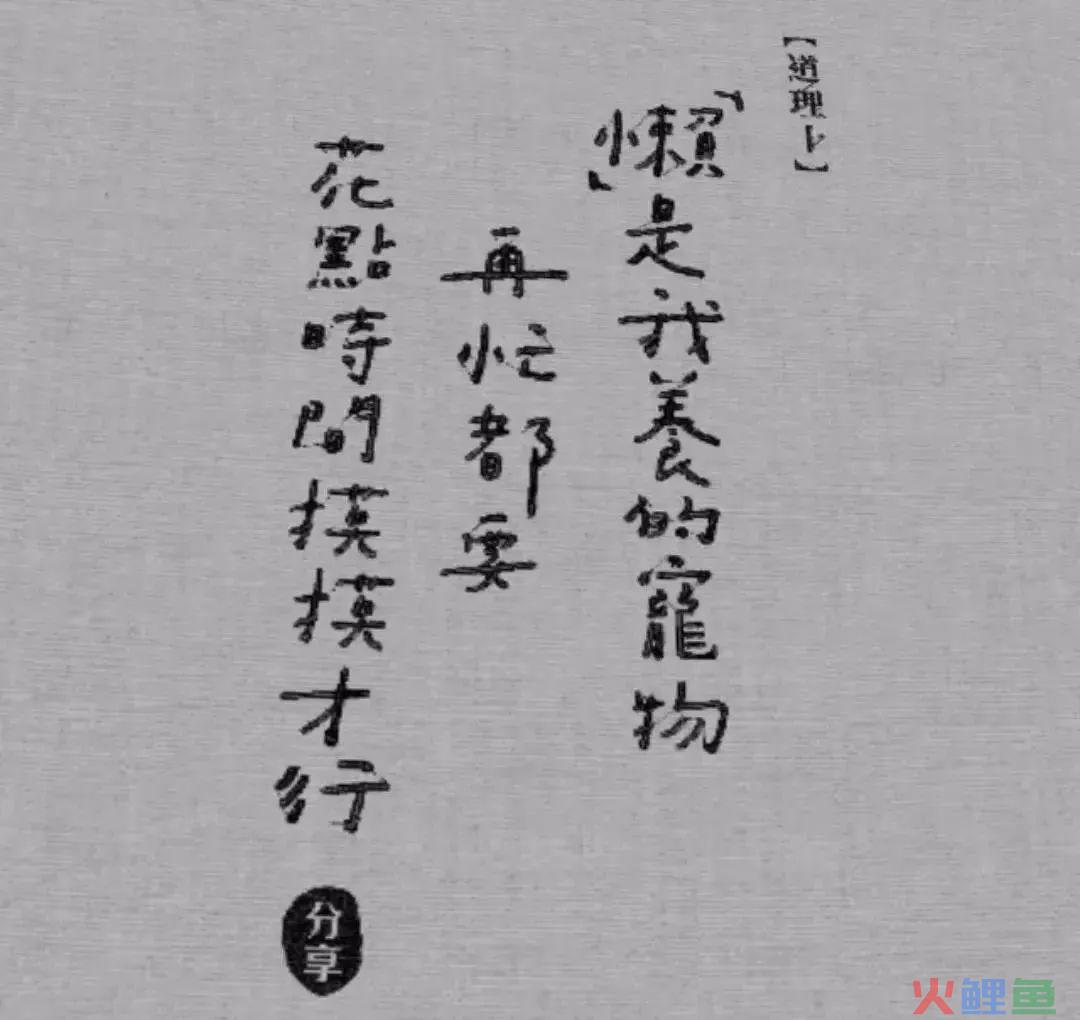 【道理上】
「懶」是我養的寵物
再忙都要
花點時間摸摸才行
分享
火鲤鱼